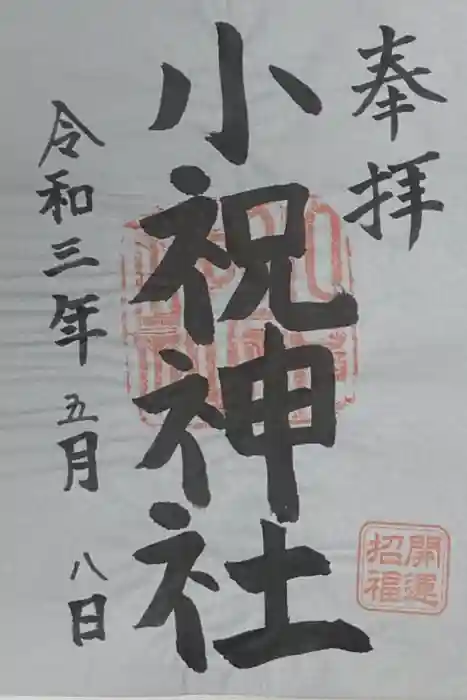 奉拝
小祝神社
令和三年五月八日
開運
招福